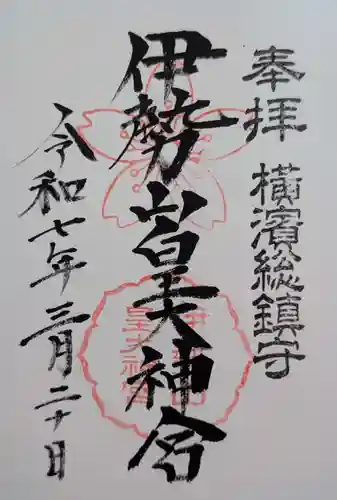 奉拝
横濱総鎮守
伊勢山皇大神宮
令和七年三月二十日